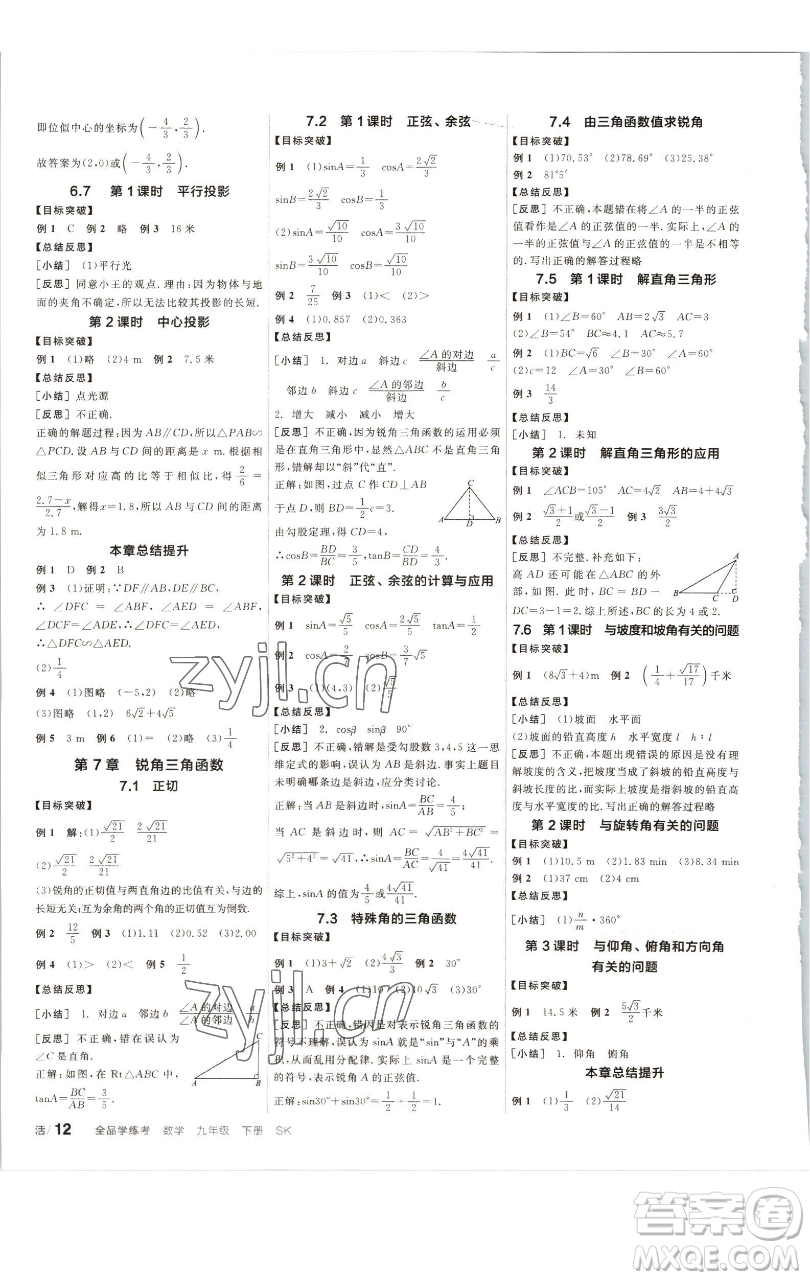 即位似中心的坐标为(-4/3,2/3).
故答案为(2,0)或(-4/3,2/3).
6.7 第1课时 平行投影
【目标突破】
例1 C 例2 略 例3 16米
【总结反思】
[小结] (1)平行光
[反思] 同意小王的观点.理由:因为物体与地
面的夹角不确定,所以无法比较其投影的长短.
第2课时 中心投影
【目标突破】
例1 (1)略 (2)4 m 例2 7.5米
【总结反思】
[小结] 点光源
[反思] 不正确.
正确的解题过程:因为AB∥CD,所以△PAB∽
△PCD.设AB与CD的距离为x m,根据相
似三角形对应高的比等于相似比,得2/6=
(2.7-x)/2.7,解得x=1.8,所以AB与CD的距离
为1.8 m.
本章总结提升
例1 D 例2 B
例3 (1)证明:∵DF∥AB,DE∥BC,
∴∠DFC=∠ABF,∠AED=∠ABF,
∠DCF=∠ADE,∴∠DFC=∠AED,
∴△DFC∽△AED.
(2)1/4
例4 (1)图略 (2)图略
(3)图略 6√2+4√5
例5 3 m 例6 (1)6 (2)(3)1/4
第7章 锐角三角函数
7.1 正切
【目标突破】
例1 解:(1)√21/2 2√21/21
(2)√21/2 2√21/21
(3)锐角的正切值与两直角边的比值有关,与边
长无关;互为余角的两个角的正切值互为倒数.
例2 12/5 例3 (1)1.11 (2)0.82
例4 (1)> (2)<
【总结反思】
[小结] 1. 对边a 邻边b ∠A的对边/∠A的邻边 a/b
[反思] 不正确.错在误认为
∠C是直角.
正解:如图,在Rt△ABC中,
tanA=BC/AB=3/5.
A B C
7.2 第1课时 正弦、余弦
【目标突破】
例1 (1)sinA=1/3 cosA=2√2/3
sinB=2√2/3 cosB=1/3
(2)sinA=√10/10 cosA=3√10/10
sinB=3√10/10 cosB=√10/10
例2 7/25 例3 (1)< (2)>
例4 (1)0.857 (2)0.243
【总结反思】
[小结] 1. 对边a ∠A的对边/斜边 a/c
邻边b ∠A的邻边/斜边 b/c
2. 增大 减小 减小 增大
[反思] 不正确.锐角三角函数的运用必须
是在直角三角形中,故本题△ABC不是直角三
角形,错在以“斜”代“直”.
正解:如图,过点C作CD⊥AB
于点D,则BD=1/2c=3.
由勾股定理,得CD=4,
∴cosB=BD/BC=3/5,tanB=CD/BD=4/3.
C A D B
第2课时 正弦、余弦的计算与应用
【目标突破】
例1 sinA=√5/5 cosA=2√5/5 tanA=1/2
例2 cosB=2/3
例3 (1)(4,3) (2)
【总结反思】
[小结] 2. cosβ sinβ 90°
[反思] 不正确,错解是受勾股数3,4,5这一思
维定式的影响,误认为AB是斜边.题目中没有
明确哪条边是斜边,应分类讨论.
正解:当AB是斜边时,sinA=BC/AB=4/5;
当AC是斜边时,AC=√(AB²+BC²)=
√(5²+4²)=√41,∴sinA=BC/AC=4/√41=4√41/41.
综上,sinA的值为4/5或4√41/41.
7.3 特殊角的三角函数
【目标突破】
例1 (1)3+√3 (2)4√3/3 例2 30°
例3 A 例4
【总结反思】
[反思] 不正确,错因是对表示锐角三角函数的
符号不理解,误认为sinA就是“sin”与“A”的乘
积,从而乱用分配律计算.实际上,sinA是一个完整
的符号,表示∠A的正弦值.
正解:sin30°+sin30°=1/2+1/2=1.
7.4 由三角函数值求锐角
【目标突破】
例1 (1)70.53° (2)78.69° (3)25.38°
例2 81°5′
【总结反思】
[反思] 不正确,本题错在将∠A的一半的正弦
值看作是∠A的正弦值的一半.实际上,∠A的
一半的正弦值与∠A的正弦值的一半是不相等
的.写出正确的解答过程略
7.5 第1课时 解直角三角形
【目标突破】
例1 (1)∠B=60° AB=2√3 AC=3
(2)∠B=54° AB≈7.3 AC≈5.9
例2 (1)BC=√6 ∠A=30° ∠B=60°
(2)c=12 ∠A=30° ∠B=60°
例3 14/3
【总结反思】
[小结] 1. 未知
第2课时 解直角三角形的应用
【目标突破】
例1 ∠ACB=105° AB=4+4√3
例2 (√3+1)/2或(√3-1)/2 例3 3√3/2
【总结反思】
[反思] 不完整.补充如下:如图,
高AD还可能在△ABC的外
部,如图,此时BD=3,CD=1,BC=BD-
DC=3-1=2.综上所述,BC的长为4或2.
A B C D
7.6 第1课时 与坡度和坡角有关的问题
【目标突破】
例1 (8√3+4)m 例2 (1/4+√17/17)千米
【总结反思】
[小结] (1)坡面 水平面
(2)坡面的铅直高度 水平长度 h l h∶l
[反思] 不正确.本题出现错误的原因是没有理解
坡度的含义,把坡度当成了斜坡的铅直高度与斜
坡的长度的比,而实际上坡度是斜坡的铅直高
度与水平宽度的比.写出正确的解答过程略
第2课时 与旋转角有关的问题
【目标突破】
例1 (1)10.5 m (2)3.4 m (3)8.34 min
例2 (1)37 cm (2)4 cm
【总结反思】
[小结] (1)n/m·360°
第3课时 与仰角、俯角和方向角
有关的问题
【目标突破】
例1 14.5米 例2 5√3/2千米
【总结反思】
[小结] 1. 仰角 俯角
本章总结提升
例1 √10/10 例2 C
活/12 全品学练考 数学 九年级 下册 SK
zyjl.cn
zyjl.cn
答案卷
MXQE.COM